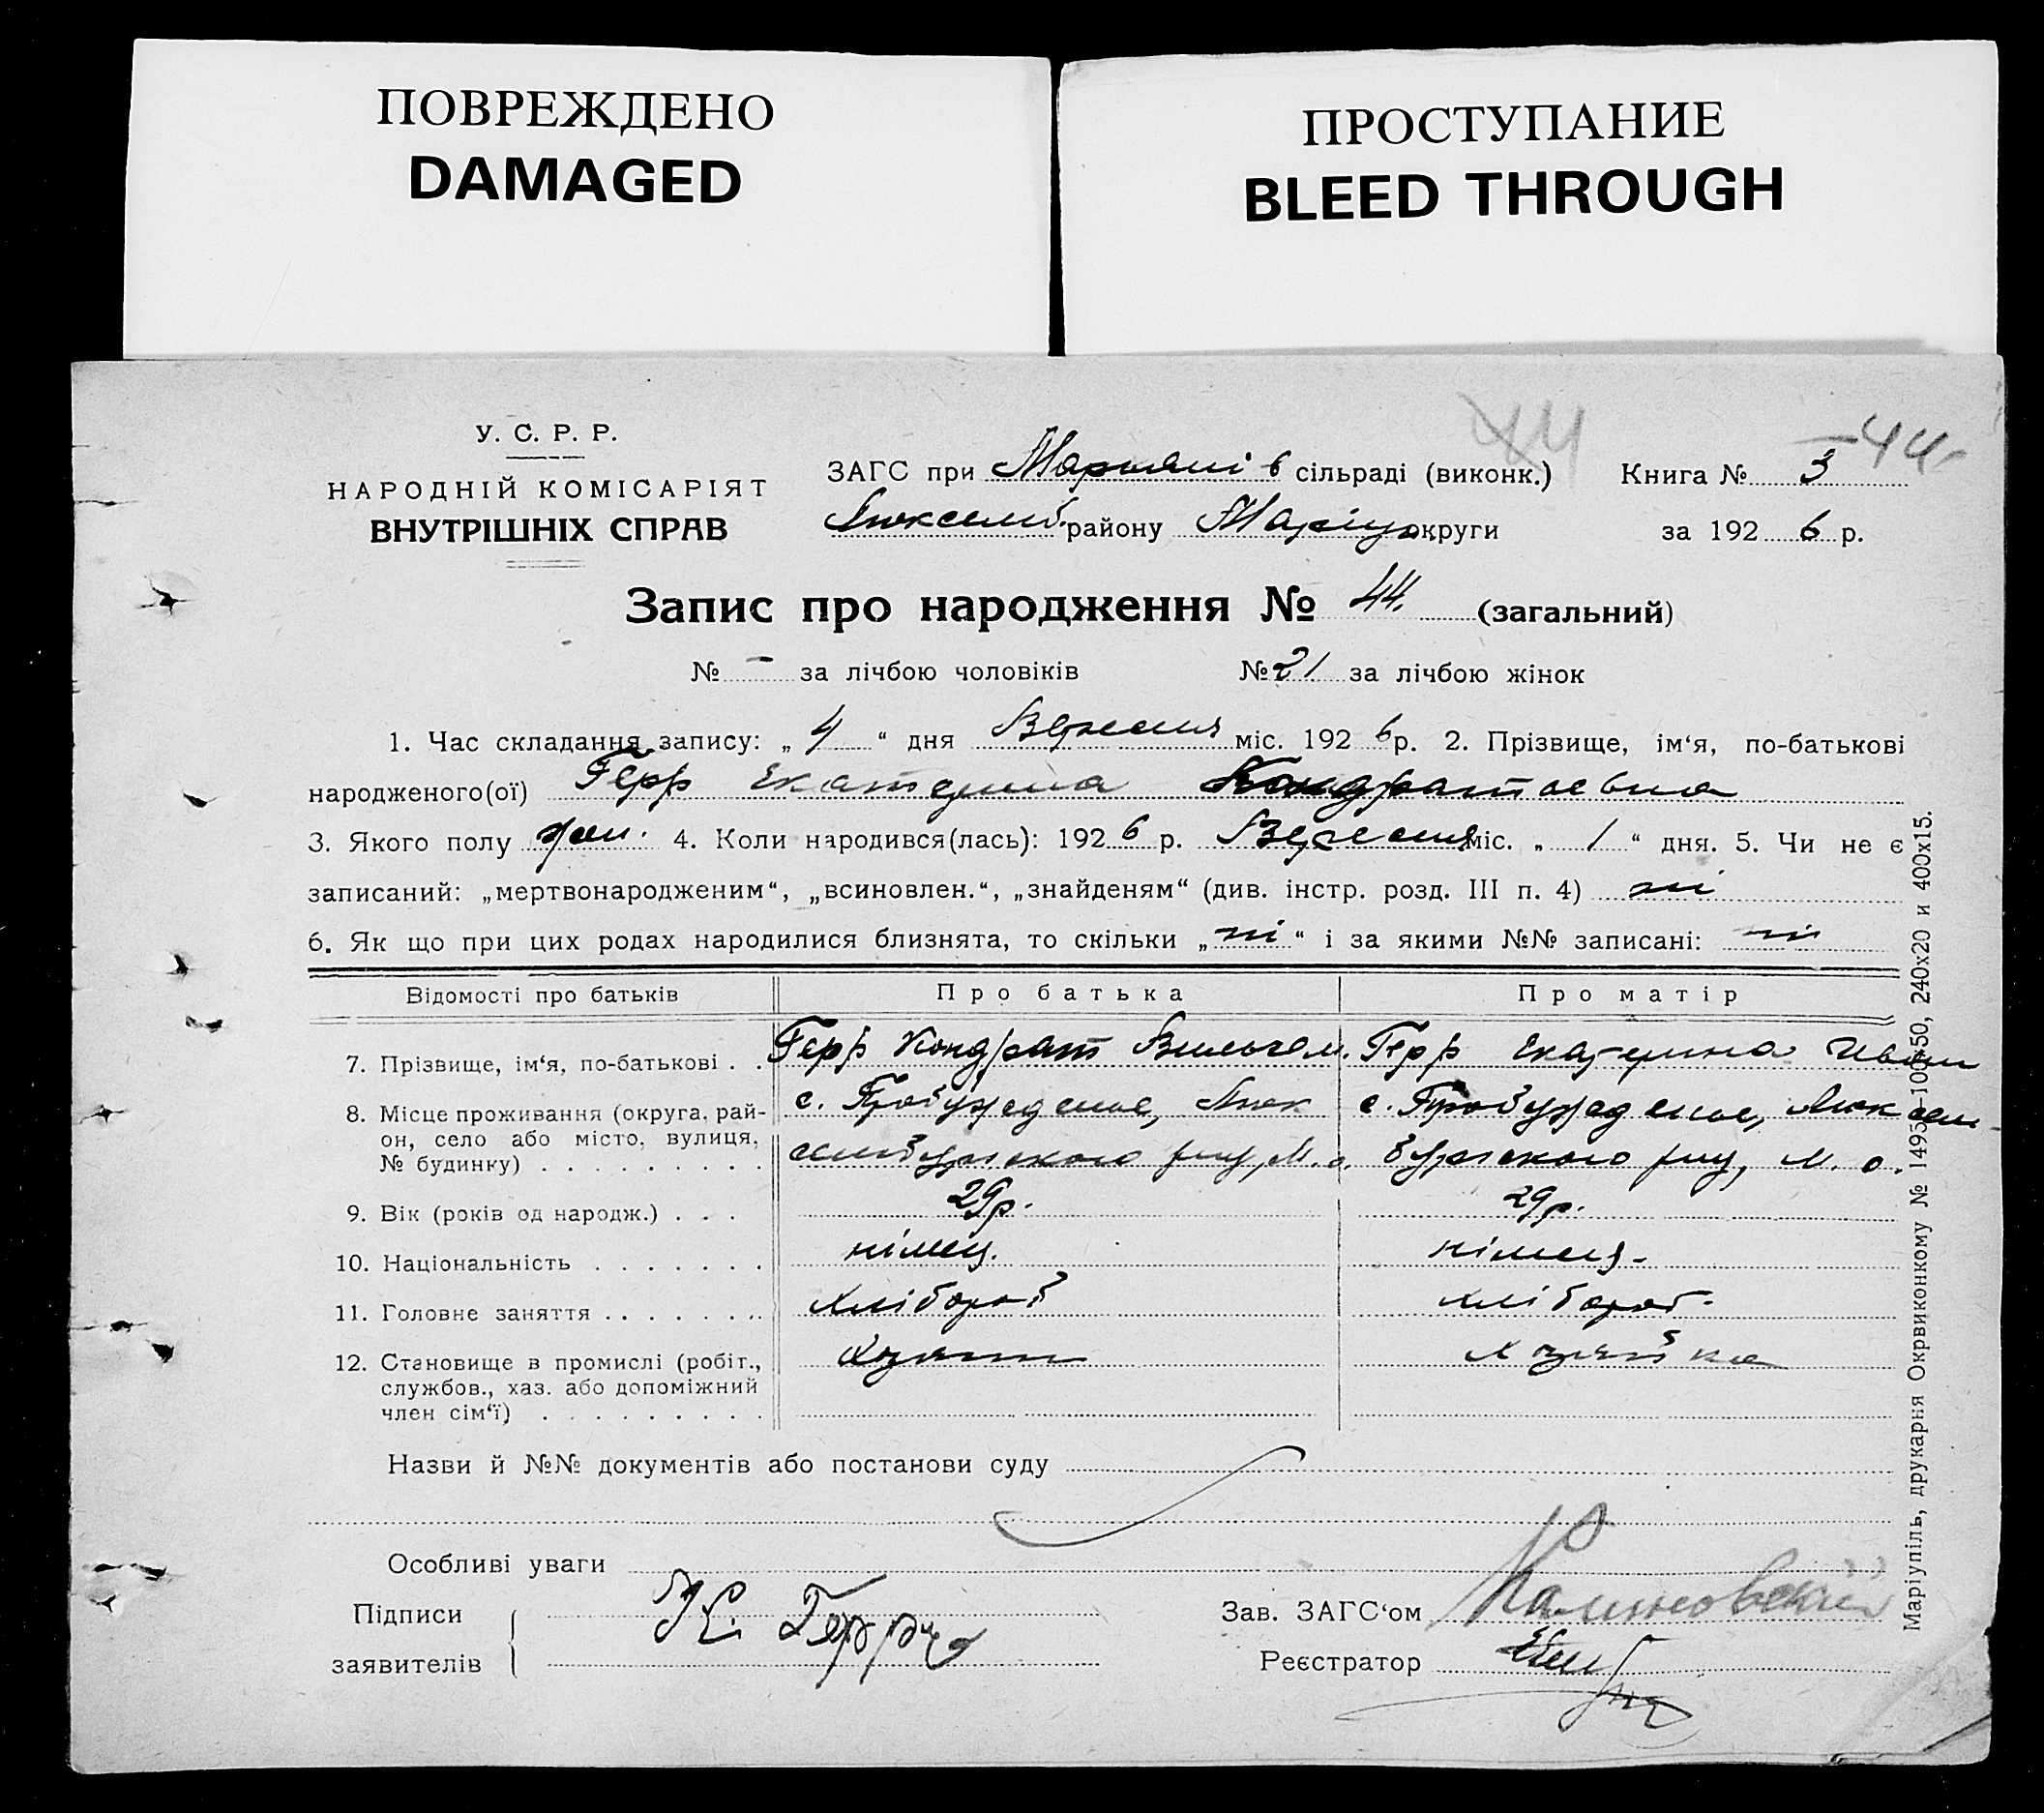 ПОВРЕЖДЕНО
DAMAGED
ПРОСТУПАНИЕ
BLEED THROUGH
44 44
У. С. Р. Р.
НАРОДНІЙ КОМІСАРІЯТ
ВНУТРІШНІХ СПРАВ
ЗАГС при сільраді (виконк.) Книга № 3
району Маріуп округи за 1926 р.
Запис про народження № 44. (загальний)
№ – за лічбою чоловіків № 21 за лічбою жінок
1. Час складання запису: „ 4 “ дня Вересня міс. 1926 р. 2. Прізвище, ім‘я, по-батькові
народженого(ої) Герр Екатерина Кондратьевна
3. Якого полу жін. 4. Коли народився(лась): 1926 р. Вересня міс. „ 1 “ дня. 5. Чи не є
записаний: „мертвонародженим“, „всиновлен.“, „знайденям“ (див. інстр. розд. III п. 4) ні
6. Як що при цих родах народилися близнята, то скільки „ ні “ і за якими №№ записані: ні
Відомості про батьків Про батька Про матір
7. Прізвище, ім‘я, по-батькові . . Герр Кондрат Вильгельм. Герр Екатерина Иван
8. Місце проживання (округа, рай- с. Пробуждение, Люк с. Пробуждение, Люксем
он, село або місто, вулиця,
№ будинку) . . . . . . . . . сембургского р-ну, М. о. бургского р-ну, М. о.
9. Вік (років од народж.) . . . 29 р. 29 р.
10. Національність . . . . . . . німец. німец.
11. Головне заняття . . . . . . . хлібороб хлібороб.
12. Становище в промислі (робіт., хазяїн хазяйка
службов., хаз. або допоміжний
член сім‘ї) . . . . . . . . .
Назви й №№ документів або постанови суду
Особливі уваги
Підписи
заявителів К. Герр
Зав. ЗАГС‘ом Калиновский
Реєстратор
Маріупіль, друкарня Окрвиконкому № 1495–100×50, 240х20 и 400х15.